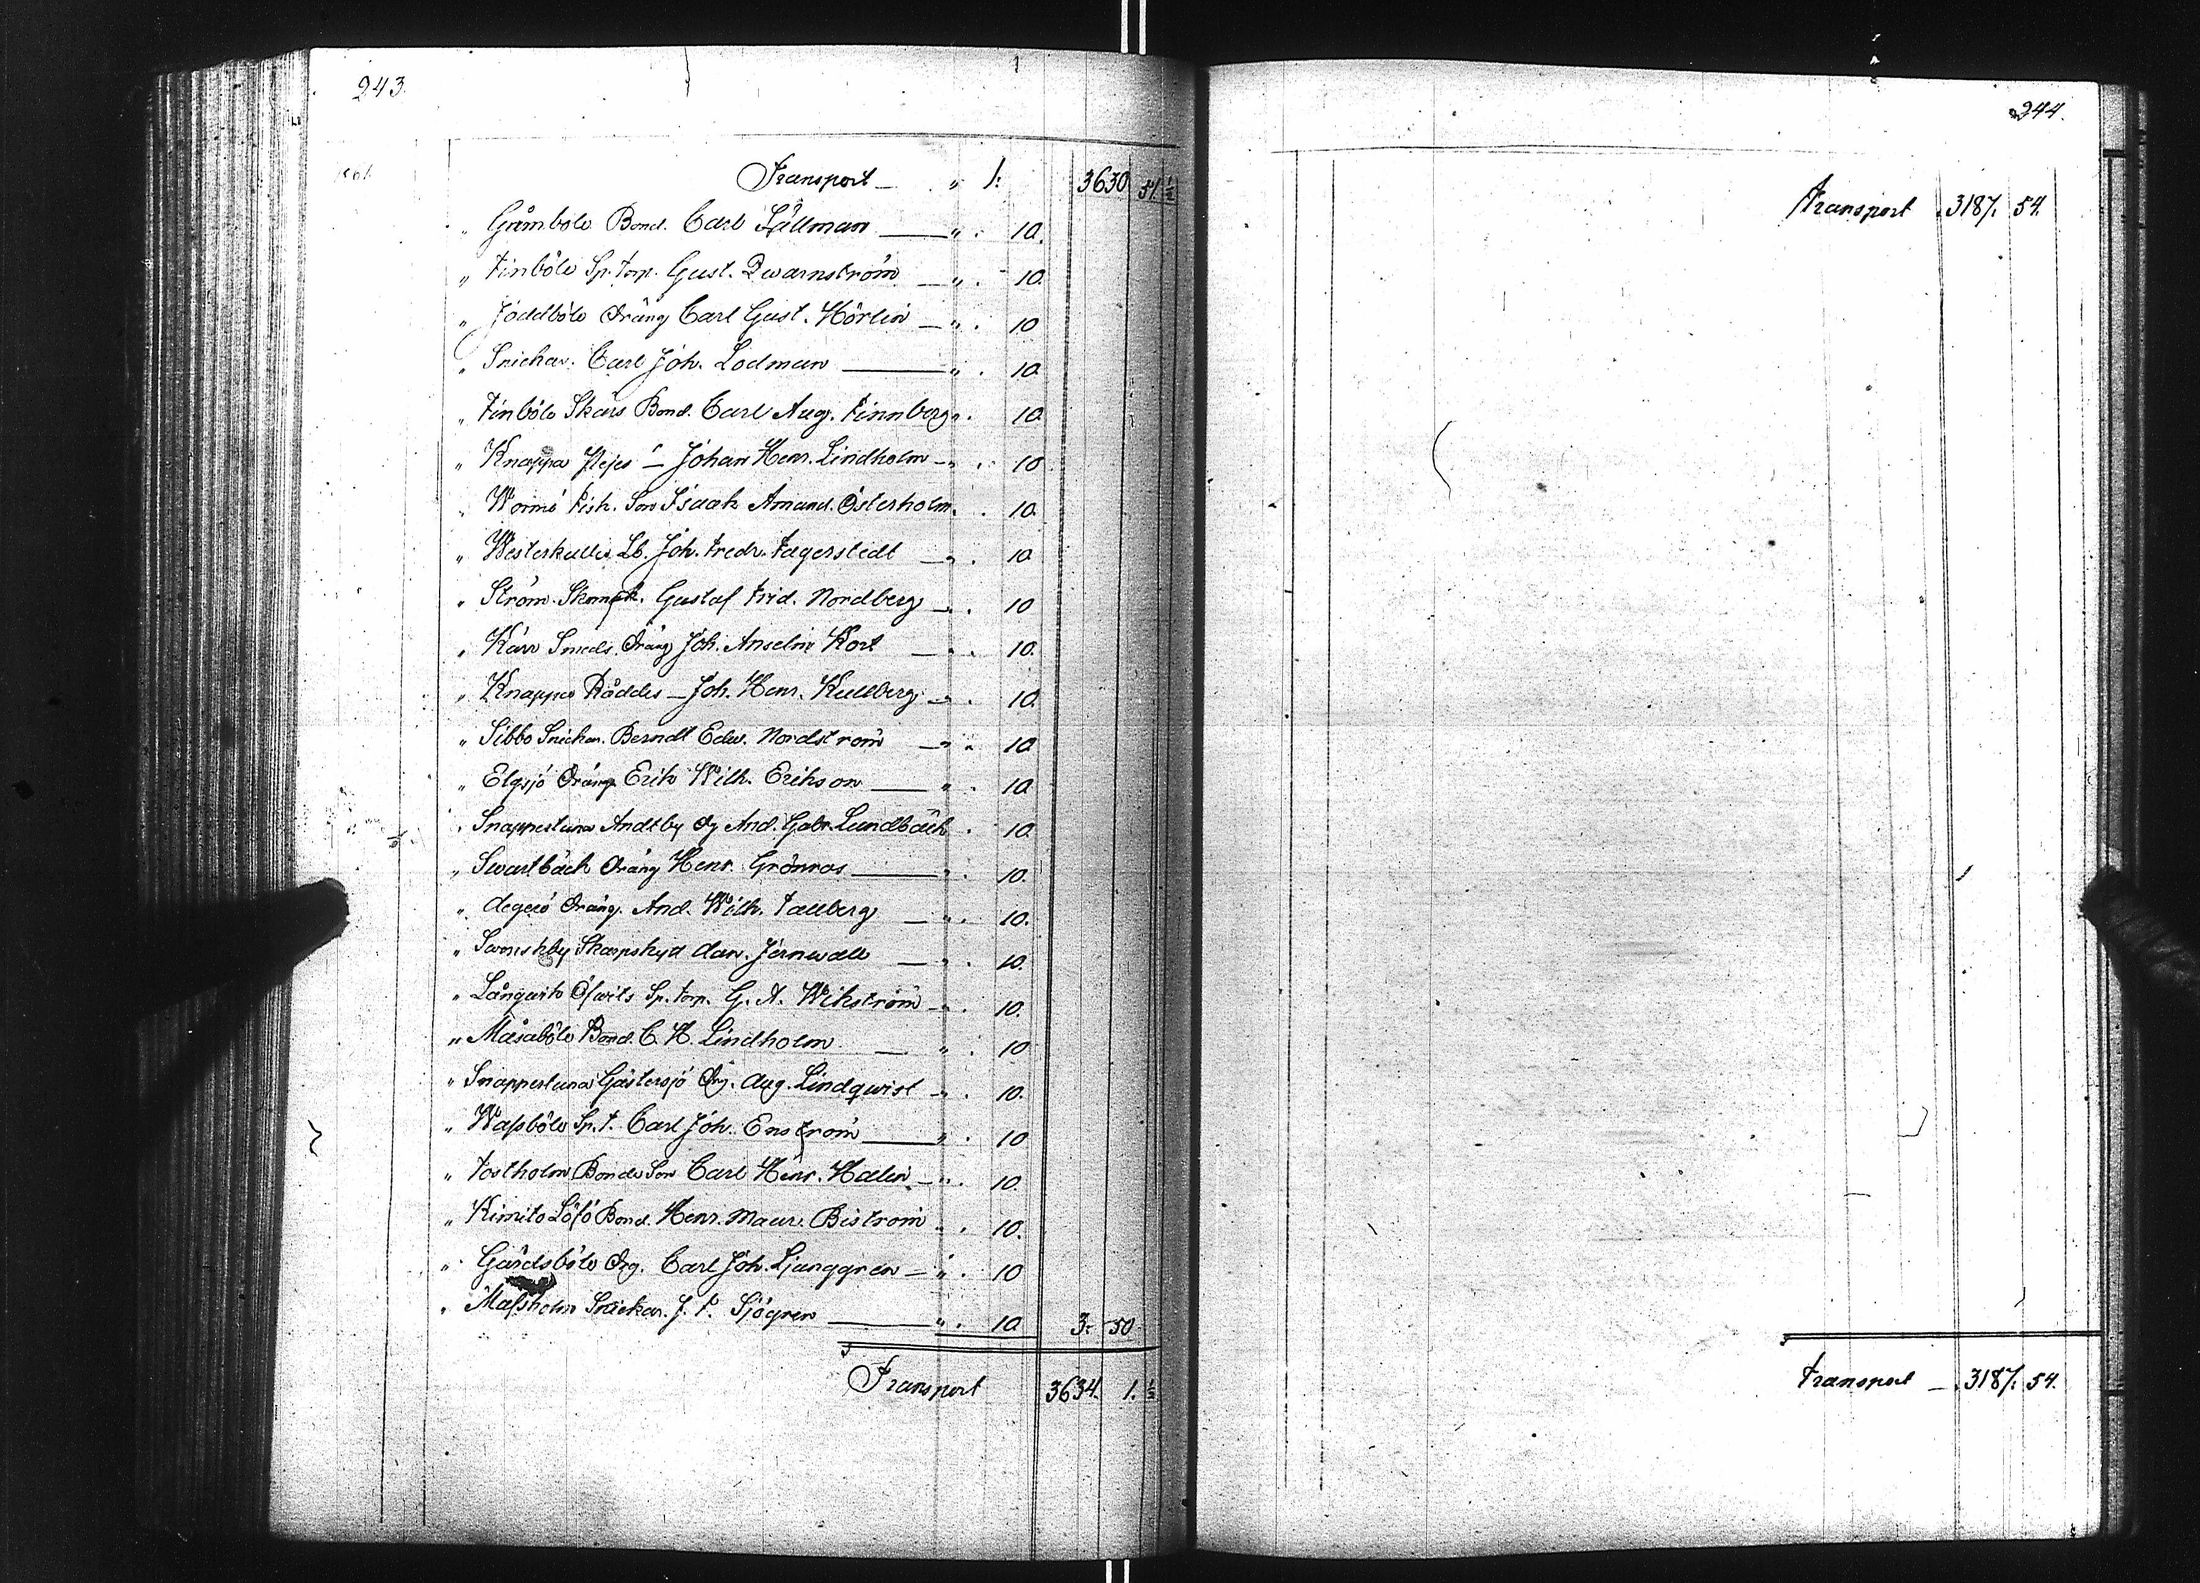 243.
1861.
Transport — " 1. 3630 51. ½
" Gåmböle Bond. Carl Fållman — " . 10.
" Finböle Sp. torp. Gust. Qwarnström — " . 10.
" Joddböle Dräng Carl Gust. Hörlin — " . 10
" Snickar. Carl Joh. Lodman — " . 10
" Finböle Skärs Bond. Carl Aug. Finnberg " . 10.
" Knappa — Johan Henr. Lindholm — " . 10
" Wormö Fisk. Son Isaak Amand. Österholm . . 10.
" Westerkulla Lb. Joh. Fredr. Fagerstedt — " . 10
" Ström. Skomak. Gustaf Frid. Nordberg — . 10
" Kärr Smeds. Dräng Joh. Anselm Kort — " . 10.
" Knappes Råddes — Joh. Henr. Kullberg — . 10.
" Sibbo Snickar. Berndt Edw. Nordström — " . 10
" Elgsjö Dräng Erik Wilh. Erikson — " . 10
" Snappertuna Andtby Dg And. Gabr. Lundbäck . 10.
" Swartbäck Dräng Henr. Grönroos — " . 10.
" Degerö Dräng. And. Wilh. Fallberg — " . 10.
" Swenskby Skarpskytt Aar. Jernwall — " . 10.
" Långwik Olwits Sp. torp. G. A. Wikström — . 10.
" Måsaböle Bond. C. H. Lindholm — " . 10
" Snappertuna Gästersjö Dg. Aug. Lindqwist — " . 10.
" Wassböle Sp. t. Carl Joh. Enström — " . 10
" Tostholm Bonde Son Carl Henr. Malen — " . 10.
" Kimito Löfö Bond. Henr. Maur. Biström . . 10.
" Gårdsböle Dg. Carl Joh. Ljunggren — " . 10
" Massholm Snickar. J. F. Sjögren — " . 10 3. 50
Transport 3634. 1. ½
244.
Transport . 3187. 54.
Transport — . 3187. 54.